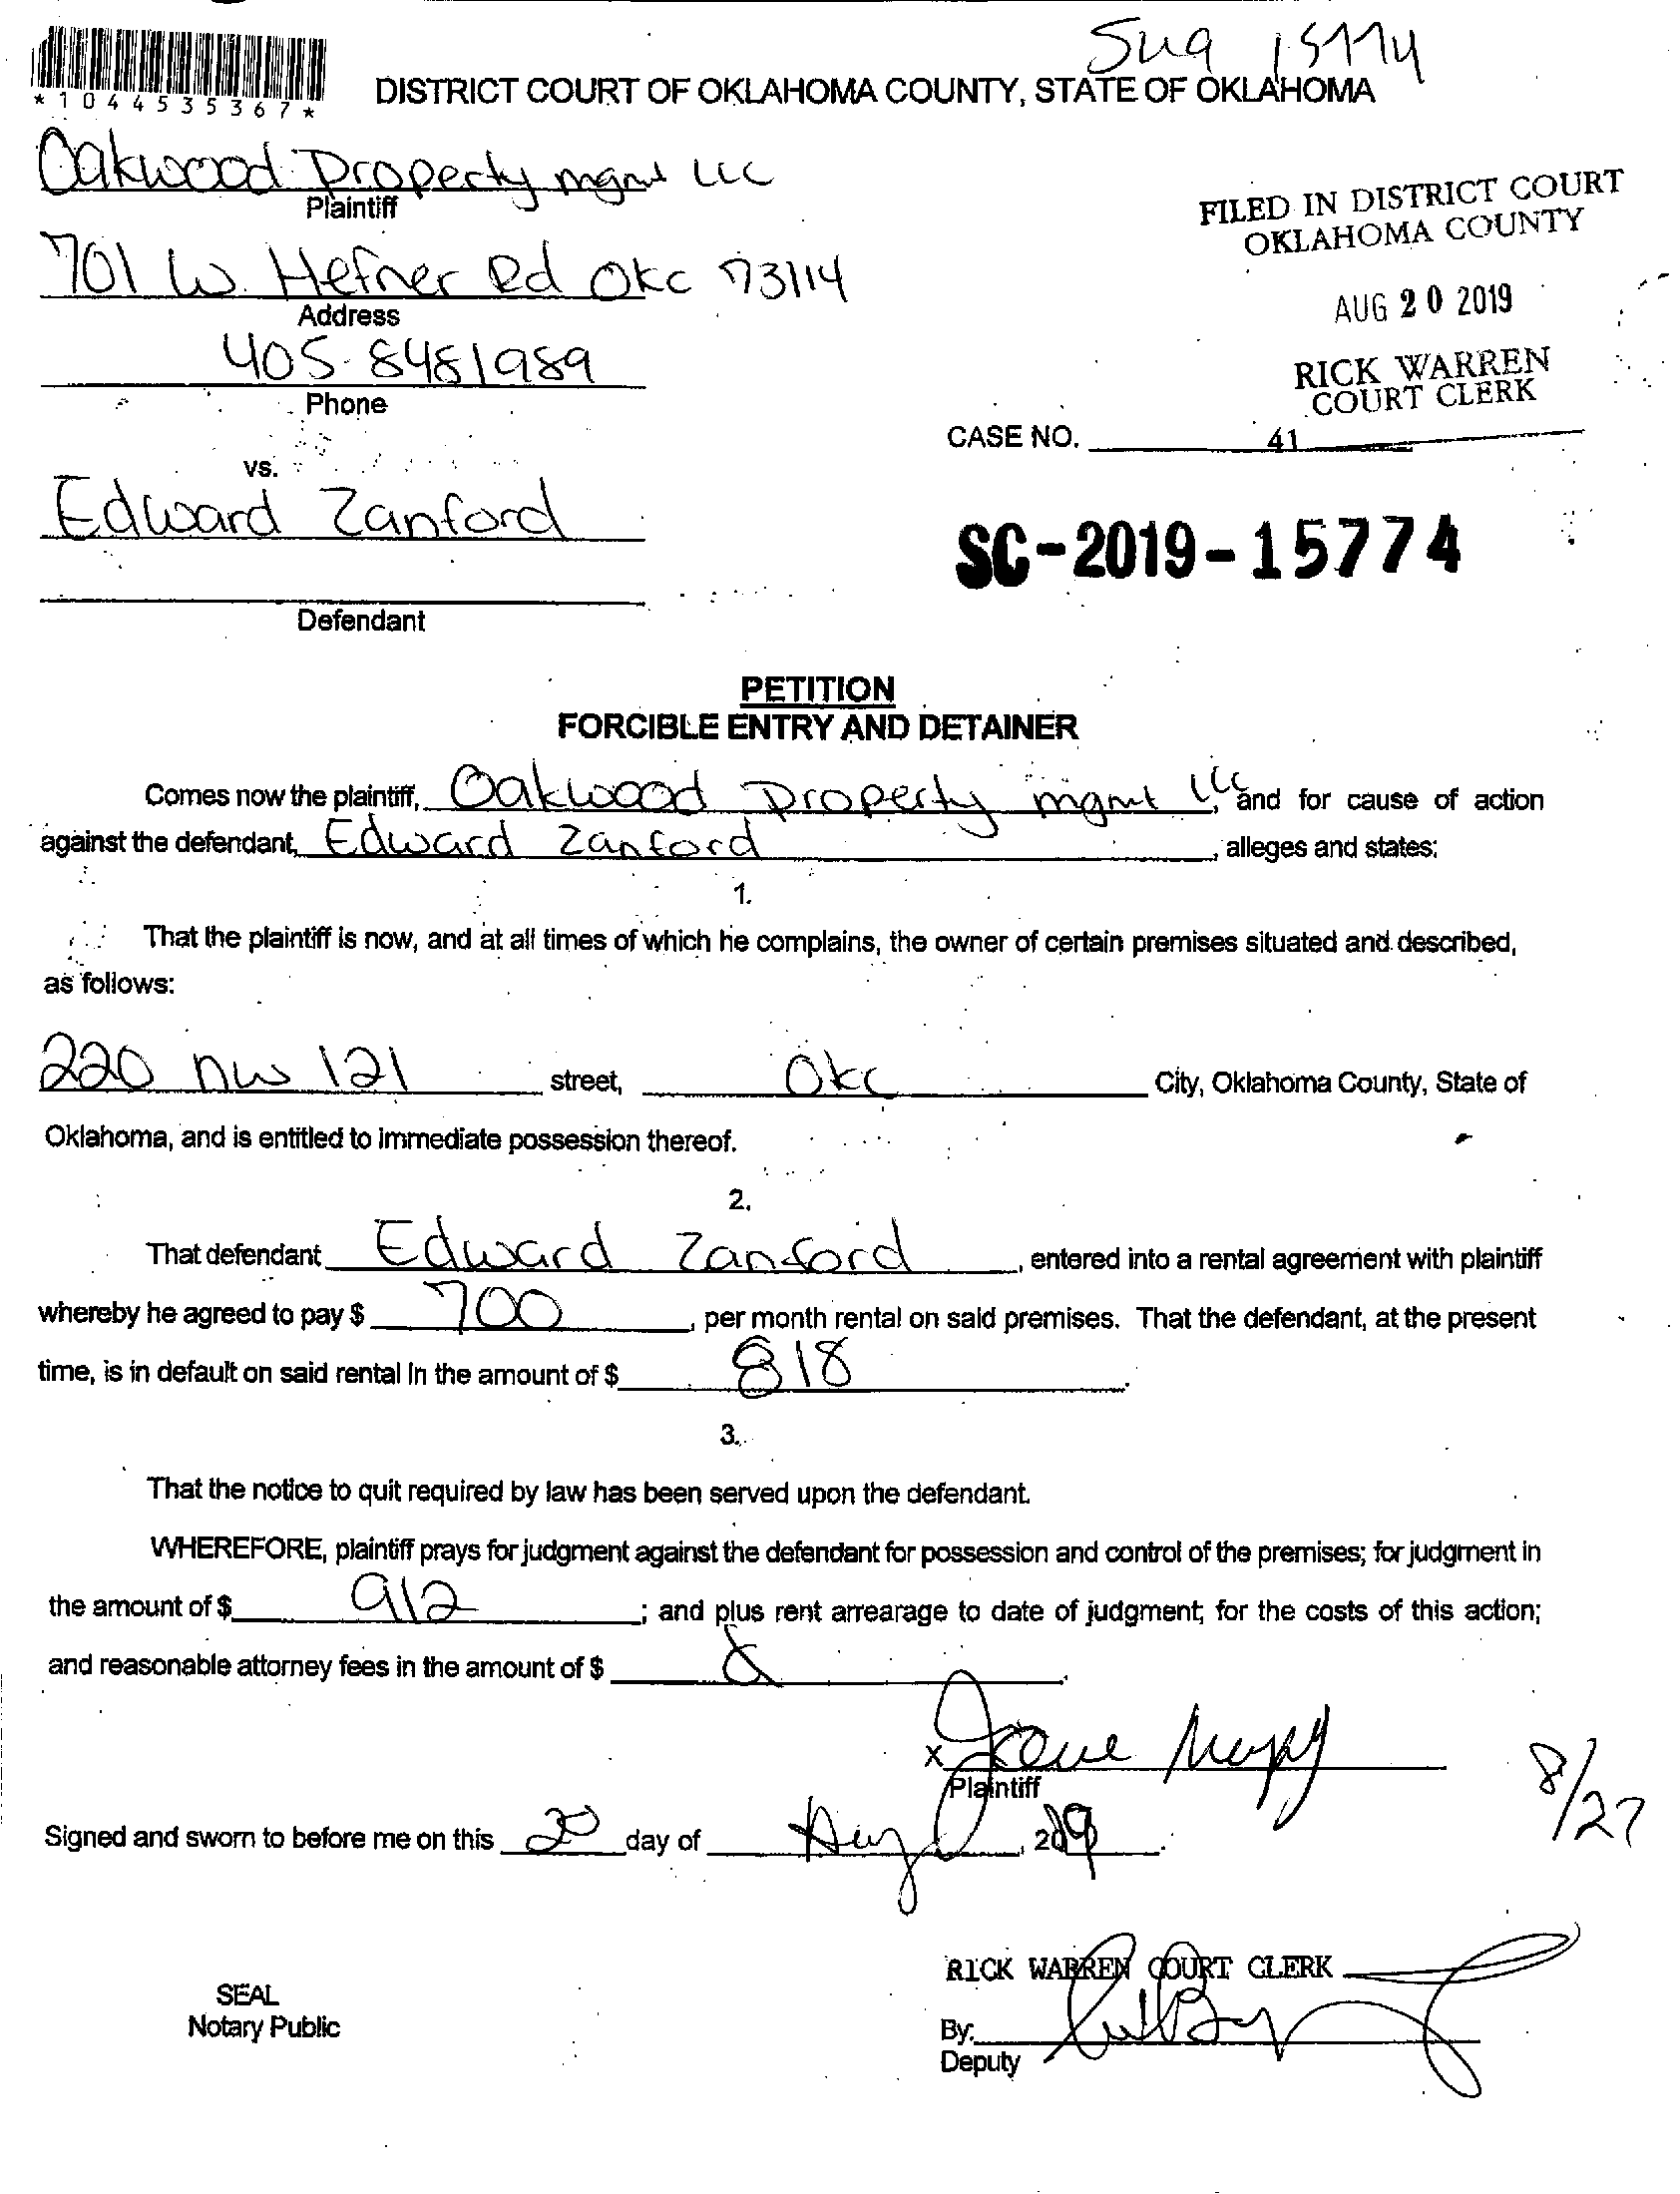 *1044535367*
DISTRICT COURT OF OKLAHOMA COUNTY, STATE OF OKLAHOMA
Oakwood Property mgmt LLC
Plaintiff
701 W. Hefner Rd OKC 73114
Address
405-8481989
Phone
FILED IN DISTRICT COURT
OKLAHOMA COUNTY
AUG 20 2019
RICK WARREN
COURT CLERK
CASE NO. 41
vs.
Edward Zanford
SC-2019-15774
Defendant
PETITION
FORCIBLE ENTRY AND DETAINER
Comes now the plaintiff, Oakwood Property mgmt LLC, and for cause of action
against the defendant, Edward Zanford, alleges and states:
1.
That the plaintiff is now, and at all times of which he complains, the owner of certain premises situated and described,
as follows:
220 NW 121 street, OKC City, Oklahoma County, State of
Oklahoma, and is entitled to immediate possession thereof.
2.
That defendant Edward Zanford, entered into a rental agreement with plaintiff
whereby he agreed to pay $ 700, per month rental on said premises. That the defendant, at the present
time, is in default on said rental in the amount of $ 818.
3.
That the notice to quit required by law has been served upon the defendant.
WHEREFORE, plaintiff prays for judgment against the defendant for possession and control of the premises; for judgment in
the amount of $ 912; and plus rent arrearage to date of judgment; for the costs of this action;
and reasonable attorney fees in the amount of $
x
Plaintiff
8/27
Signed and sworn to before me on this 20 day of Aug, 2019.
RICK WARREN COURT CLERK
SEAL
Notary Public
By:
Deputy